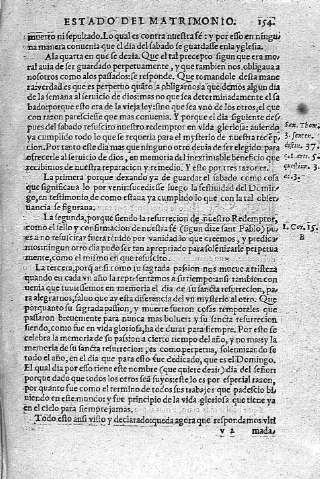 ESTADO DEL MATRIMONIO. 154.
muerto ni sepultado. Lo qual es contra nuestra fe: y por esso en ningu
na manera conuenia que el dia del sabado se guardasse en la yglesia.
A la quarta en que se dezia. Que el tal precepto segun que era mo
ral auia de ser guardado perpetuamente, y que tambien nos obligaua a
nosotros como a los passados: se responde. Que tomandole desta mane
ra verdad es que es perpetuo quãto a obligarnos a que demos algun dia
de la semana al seruicio de dios: mas no que sea determinadamente el sa
bado: porque esso era de la vieja ley: sino que sea vno de los otros, el que
con razon paresciesse que mas conuenia. Y porque el dia siguiente des-
pues del sabado resuscito nuestro redemptor en vida gloriosa: auiendo
ya cumplido todo lo que se requeria para el mysterio de nuestra redemp
cion. Por tanto este dia mas que ninguno otro deuia de ser elegido para
ofrescerle al seruicio de dios, en memoria del inextimable beneficio que
rescibimos de nuestra reparacion y remedio. Y esto por tres razones.
La primera porque dexando ya de guardar el sabado como cosa
que significaua lo por venir: sucediesse luego la festiuidad del Domin-
go, en testimonio de como estaua ya cumplido lo que con la tal obser-
uancia se figuraua.
La segunda, porque siendo la resurrecion de nuestro Redemptor,
como el sello y confirmacion de nuestra fe (segun dize sant Pablo) pu
es a no resuscitar fuera tenido por vanidad lo que creemos, y predica
mos: ningun otro dia pudo ser tan apropriado para solenizarse perpetua
mente, como el mismo en que resuscito.
La tercera, porq̃ assi como su sagrada passion nos mueue a tristeza
quando en cada vn año la representamos a su tiempo: ansi tambien con
uenia que tuuiessemos en memoria el dia de su sancta resurrecion, pa
ra alegrarnos, saluo que ay esta diferencia del vn mysterio al otro. Que
porquanto su sagrada passion, y muerte fueron cosas temporales que
passaron breuemente para nunca mas boluer: y su sancta resurrecion
siendo, como fue en vida gloriosa, ha de durar para siempre. Por esso se
celebra la memoria de su passion a cierto tiempo del año, y no mas: y la
memoria de su sancta resurrecion es como perpetua, solennizando se
todo el año, en el dia que para esso fue dedicado, que es el Domingo.
El qual dia por esso tiene este nombre (que quiere dezir) dia del señor:
porque dado que todos los otros son suyos: este lo es por especial razon,
por quanto fue como el termino de todos sus trabajos que padescio bi
uiendo en este mundo: y fue principio de la vida gloriosa que tiene ya
en el cielo para siempre jamas.
Todo esto ansi visto y declarado: queda agora que respondamos vlti
v 2 mada,
San. Thom.
3. senten.
1. Cor. 15.
B